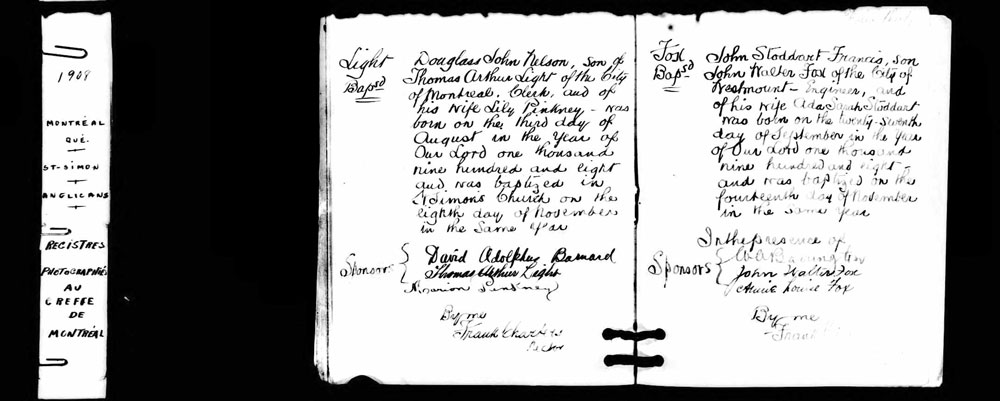 1908
MONTRÉAL
QUÉ.
ST-SIMON
ANGLICANS
REGISTRES
PHOTOGRAPHIÉS
AU
GREFFE
DE
MONTRÉAL
Light
Bapsd
Douglass John Nelson, son of
Thomas Arthur Light of the City
of Montreal, Clerk, and of
his wife Lily Pinkney - was
born on the third day of
August in the Year of
Our Lord one thousand
nine hundred and eight
and was baptized in
St Simon's Church on the
eighth day of November
in the Same Year
Sponsors
David Adolphus Barnard
Thomas Arthur Light
Marion Pinkney
By me
Frank Charters
Rector
Fox
Bapsd
John Stoddart Francis, son
John Walter Fox of the City of
Westmount - Engineer, and
of his wife Ada Sarah Stoddart
was born on the twenty-seventh
day of September in the Year
of Our Lord one thousand
nine hundred and eight -
and was baptized on the
fourteenth day of November
in the same year
In the presence of
Sponsors
W A Barrington
John Walter Fox
Annie Louise Fox
By me
Frank